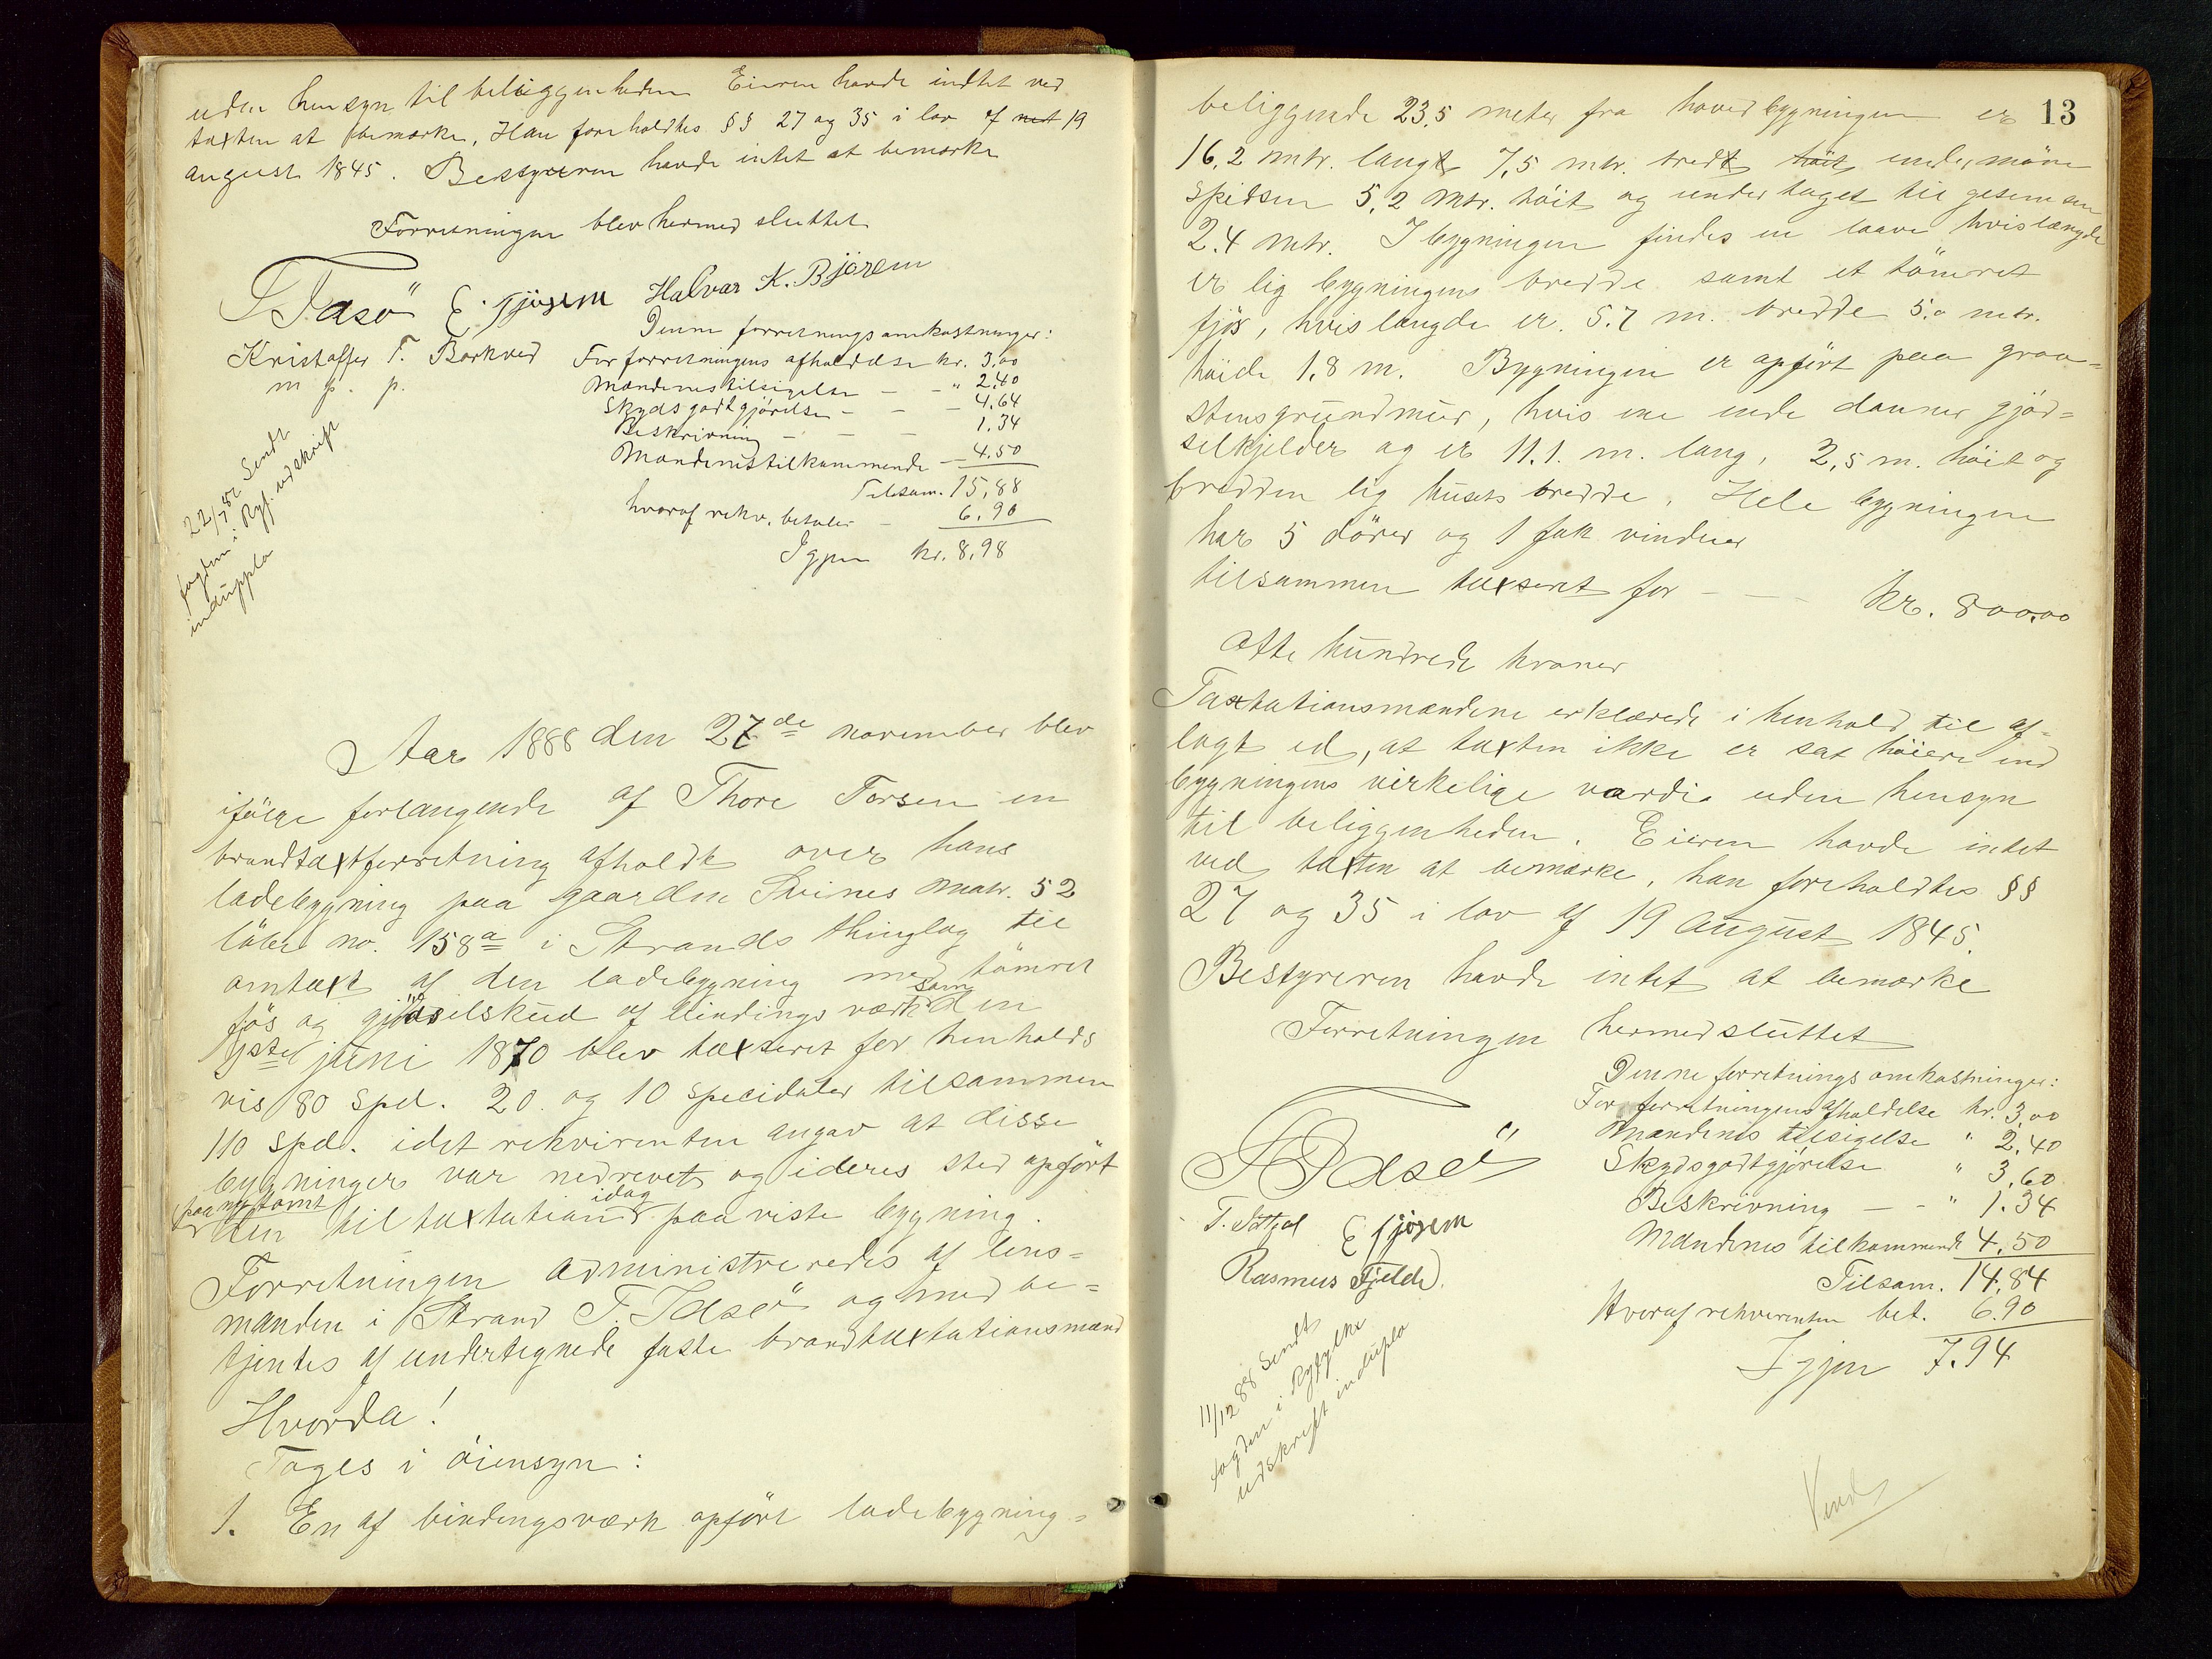 uden hensyn til beliggenheden Eieren havde indtet ved
taxten at bemærke, Han foreholdtes §§ 27 og 35 i lov af 19
august 1845. Bestyreren havde intet at bemærke
Forretningen blev hermed sluttet
T Idsö E. Tjösem Halvar K. Björen
Denne forretnings omkostninger:
Kristoffer T. Barkved For forretningens afholdelse kr. 3,00
m p. p. Mændenes tilsigelse — - " 2,40
Skydsgodtgjörelse - - - 4,64
Beskrivning - - - 1,34
Mændenes tilkommende — 4.50
Tilsam. 15,88
hvoraf rekv. betaler - 6,90
Igjen kr. 8,98
22/7 Sendt
fogden i Ryf. udskrift
induppla
Aar 1888 den 27de november blev
ifölge forlangende af Thore Torsen en
brandtaxtforretning afholdt over hans
ladebygning paa gaarden Svines matr. 52
löbe no. 158a i Strands thinglag til
omtaxt af den ladebygning med tömret
fös og gjödselskud af bindingsværk som den
juni 1870 blev taxseret for henholds
vis 80 spd. 20 og 10 specidaler tilsammen
110 spd. idet rekvirenten angav at disse
bygninger var nedrevet og i deres sted opfört
paa ny tomt
den til taxtation idag paaviste bygning.
Forretningen administreredes af lens=
manden i Strand T. Idsö og med be=
tjentes af undertegnede faste brandtaxtationsmænd
Hvorda!
Toges i öiensyn:
1. En af bindingsværk opfört ladebygning=
13
beliggende 23,5 meter fra hovedbygningen er
16,2 mtr. langt 7,5 mtr. bredt höit under möne
spidsen 5,2 mtr. höit og under taget til gesemsen
2.4 mtr. I bygningen findes en laave hvis længde
er lig bygningens bredde samt et tömret
fjös, hvis længde er 5.7 m. bredde 5.0 mtr.
höide 1,8 m. Bygningen er opfört paa graa=
stensgrundmur, hvis ene ende danner gjöd=
selkjelder og er 11.1. m. lang, 2,5 m. höit og
bredden lig husets bredde. Hele bygningen
har 5 dörer og 1 fak vinduer
tilsammen taxseret for - — - kr. 800,00
Otte hundrede kroner
Taxtationsmændene erklærede i henhold til af=
lagt ed, at taxten ikke er sat höiere end
bygningens virkelige værdi uden hensyn
til beliggenheden. Eieren havde intet
ved taxten at bemærke, han foreholdtes §§
27 og 35 i lov af 19 august 1845.
Bestyreren havde intet at bemærke
Forretningen hermed sluttet
Denne forretnings omkostninger:
For forretningens afholdelse kr. 3,00
Mændenes tilsigelse " 2,40
T Idsö Skydsgodtgjörelse " 3,60
Beskrivning — - " 1.34
T. E Tjösem Mændenes tilkommende 4,50
Rasmus Fjelde. Tilsam. 14,84
Hvoraf rekvirenten bet. 6.90
Igjen 7.94
11/12 88 Sendt
fogden i Ryfylke
udskrift induplo
Vend